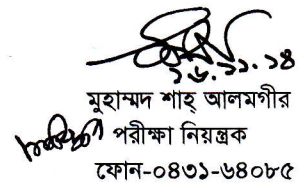 ১৬.১১.১৪
মুহাম্মদ শাহ্ আলমগীর
পরীক্ষা নিয়ন্ত্রক
ফোন-০৪৩১-৬৪০৮৫